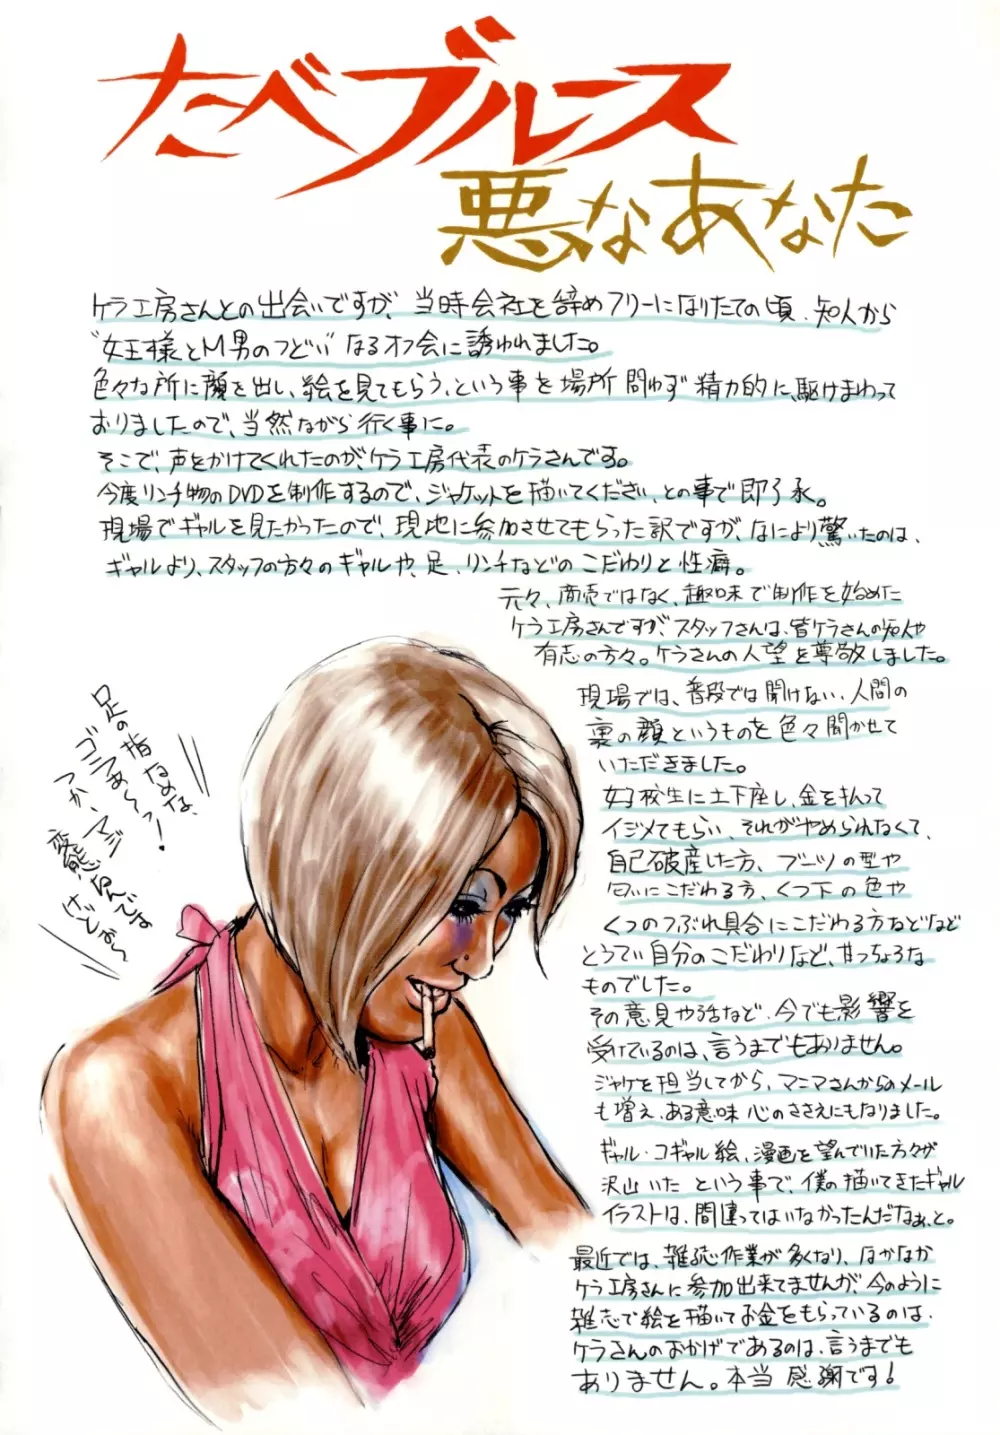 たべブルース
悪なあなた
ケラ工房さんとの出会いですが、当時会社を辞めフリーになりたての頃、知人から
"女王様とM男のつどい"なるオフ会に誘われました。
色々な所に顔を出し、絵を見てもらう、という事を場所問わず精力的に、駆けまわって
おりましたので、当然ながら行く事に。
そこで、声をかけてくれたのが、ケラ工房代表のケラさんです。
今度リンチ物のDVDを制作するので、ジャケットを描いてください、との事で即了承。
現場でギャルを見たかったので、現地に参加させてもらった訳ですが、なにより驚いたのは、
ギャルより、スタッフの方々のギャルや、足、リンチなどのこだわりと性癖。
元々、商売ではなく、趣味で制作を始めた
ケラ工房さんですが、スタッフさんは、皆ケラさんの知人や
有志の方々。ケラさんの人望を尊敬しました。
現場では、普段では聞けない、人間の
裏の顔というものを色々聞かせて
いただきました。
女子校生に土下座し、金を払って
イジメてもらい、それがやめられなくて、
自己破産した方、ブーツの型や
匂いにこだわる方、くつ下の色や
くつのつぶれ具合にこだわる方などなど
とうてい自分のこだわりなど、甘っちょろな
ものでした。
その意見や話など、今でも影響を
受けているのは、言うまでもありません。
ジャケを担当してから、マニマさんからのメール
も増え、ある意味心のささえにもなりました。
ギャル・コギャル絵、漫画を望んでいた方々が
沢山いたという事で、僕の描いてきたギャル
イラストは、間違ってはいなかったんだなぁ、と。
最近では、雑誌作業が多くなり、なかなか
ケラ工房さんに参加出来てませんが、今のように
雑志で絵を描いてお金をもらっているのは、
ケラさんのおかげであるのは、言うまでも
ありません。本当感謝です!
足の指なめな、
ゴラァあ〜っ!
つか、マジ
変態